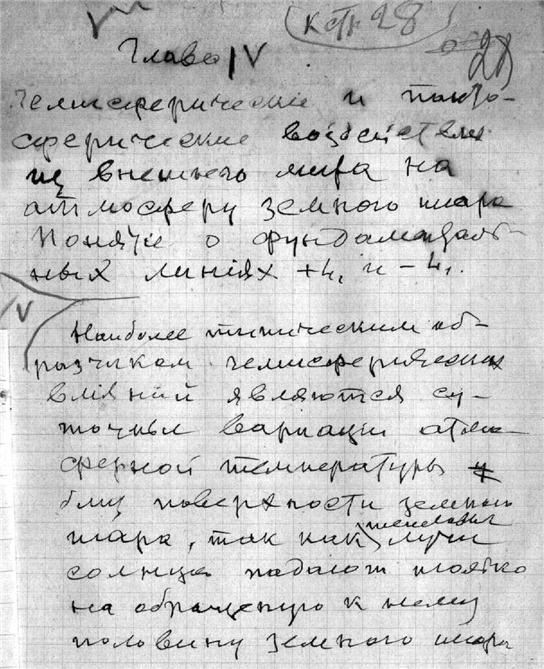 (к стр. 28)
28
Глава IV
Гемисферические и панто-
сферические воздействия
из внешнего мира на
атмосферу земного шара
Понятие о фундаменталь-
ных линиях +4, и -4,.
V
Наиболее типическим об-
разчиком гемисферических
влияний являются су-
точные вариации атмо-
сферной температуры
близ поверхности земного
тепловые
шара, так как лучи
солнца падают только
на обращеную к нему
половину земного шара